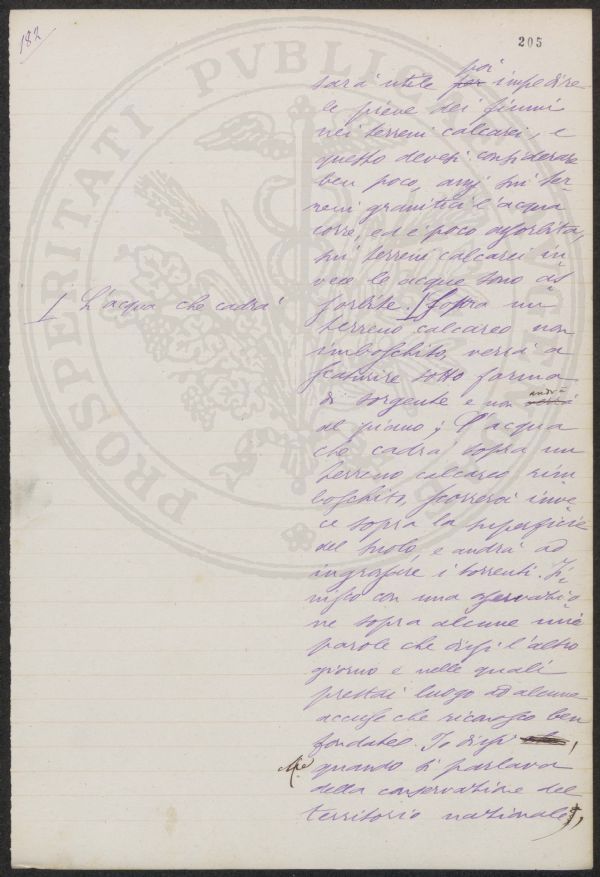 182
205
PROSPERITATI PVBLICAE
poi
sarà utile per impedire
le piene dei fiumi
nei terreni calcarei, e
questo devesi considerare
ben poco, anzi sui ter-
reni granitici l'acqua
corre, ed è poco assorbita,
sui terreni calcarei in-
vece le acque sono as-
sorbite. / Sopra un
/ L'acqua che cadrà
terreno calcareo non
imboschito, verrà a
scaturire sotto forma
di sorgente e non verrà
andrà
al fiume; L'acqua
che cadrà sopra un
terreno calcareo rim-
boschito, scorrerà inve-
ce sopra la superficie
del suolo, e andrà ad
ingrossare i torrenti. Fi-
nisco con una osservazio-
ne sopra alcune mie
parole che dissi l'altro
giorno e nelle quali
prestai luogo ad alcune
accuse che riconosco ben
fondate. Io dissi che,
quando si parlava
della conservazione del
territorio nazionale,